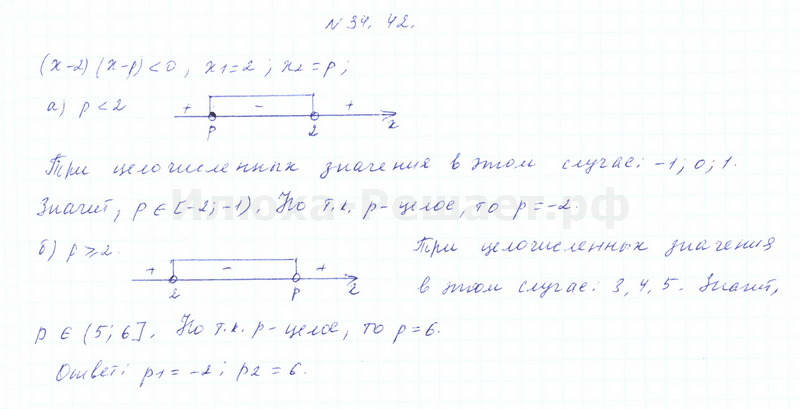 N 34. 42.
(x-2)(x-p)<0, x1=2; x2=p;
а) p<2
+ - +
p 2 x
Три целочисленных значения в этом случае: -1; 0; 1.
Значит, p ∈ [-2; -1). Но т.к. p-целое, то p=-2.
Илюха-Решает.рф
б) p⩾2.
+ - +
2 p x
Три целочисленных значения
в этом случае: 3, 4, 5. Значит,
p ∈ (5; 6]. Но т.к. p-целое, то p=6.
Ответ: p1=-2; p2=6.